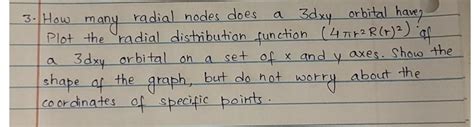 3. How many radial nodes does a 3dxy orbital have?
Plot the radial distribution function (4πr²R(r)²) of
a 3dxy orbital on a set of x and y axes. Show the
shape of the graph, but do not worry about the
coordinates of specific points.